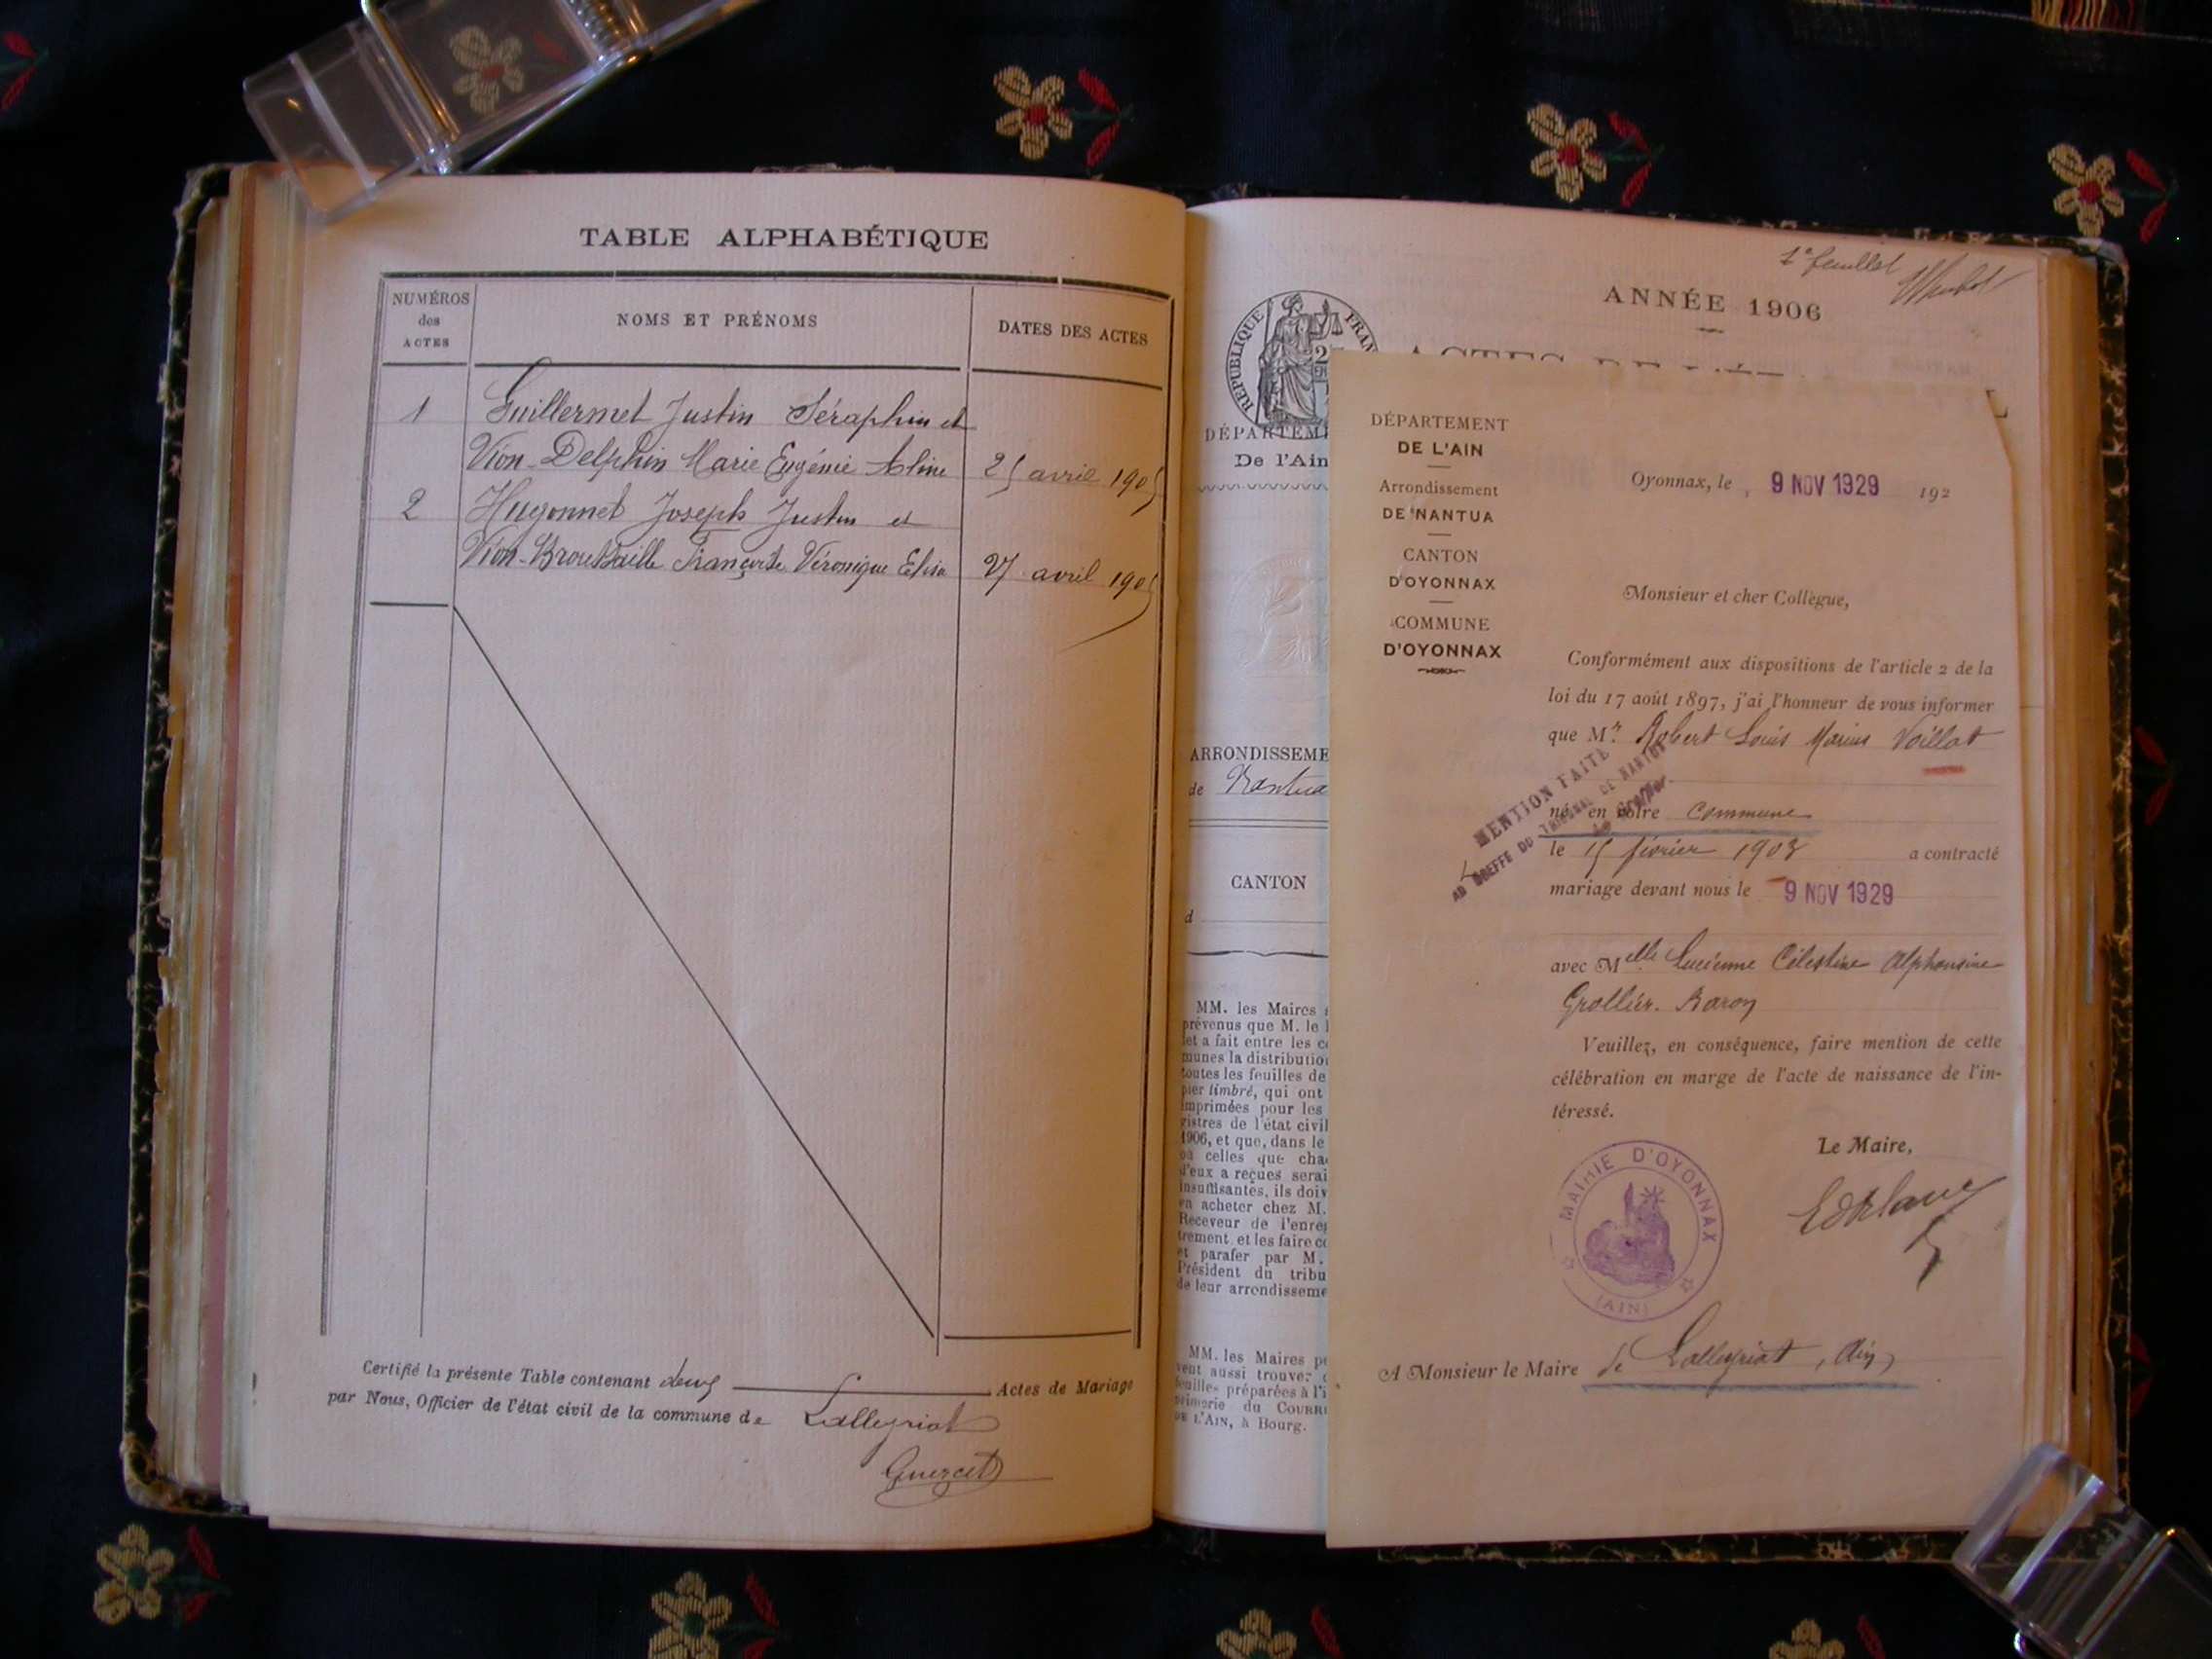 TABLE ALPHABÉTIQUE
NUMÉROS
des
ACTES
NOMS ET PRÉNOMS
DATES DES ACTES
1 Guillermet Justin Séraphin et
Vion-Delphin Marie Eugénie Aline 25 avril 1905
2 Hugonnet Joseph Justin et
Vion-Broussaille Françoise Véronique Elisa 27 avril 1905
Certifié la présente Table contenant deux Actes de Mariage
par Nous, Officier de l'état civil de la commune de Lalleyriat
Guercet
1er feuillet
ANNÉE 1906
RÉPUBLIQUE FRAN
DÉPARTEM
De l'Ain
ARRONDISSEME
de Nantua
CANTON
d
MM. les Maires
prévenus que M. le
let a fait entre les c
munes la distributio
toutes les feuilles de
pier timbré, qui ont
imprimées pour les
gistres de l'état civil
1906, et que, dans le
où celles que cha
d'eux a reçues serai
insuffisantes, ils doiv
en acheter chez M.
Receveur de l'enre
trement et les faire c
et parafer par M.
Président du tribu
de leur arrondisseme
MM. les Maires p
vent aussi trouver
feuilles préparées à l'i
primerie du COURRI
DE L'AIN, à Bourg.
DÉPARTEMENT
DE L'AIN
Arrondissement
DE NANTUA
CANTON
D'OYONNAX
COMMUNE
D'OYONNAX
Oyonnax, le 9 NOV 1929 192
Monsieur et cher Collègue,
Conformément aux dispositions de l'article 2 de la
loi du 17 août 1897, j'ai l'honneur de vous informer
que Mr. Robert Louis Marius Voillat
MENTION FAITE
AU GREFFE DU TRIBUNAL DE NANTUA
Le Greffier
né en votre commune
le 15 février 1903 a contracté
mariage devant nous le 9 NOV 1929
avec Melle Lucienne Célestine Alphonsine
Grollier-Baron
Veuillez, en conséquence, faire mention de cette
célébration en marge de l'acte de naissance de l'in-
téressé.
Le Maire,
MAIRIE D'OYONNAX
(AIN)
A Monsieur le Maire de Lalleyriat, Ain